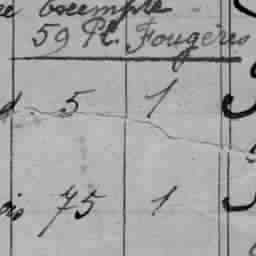 exemple
59 Pl. Fougères
d 5 1
ois 75 1